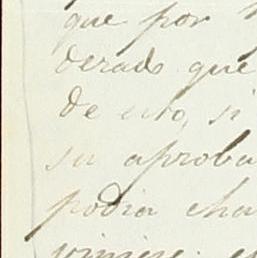 que por
derado que
de esto, si
su aproba
podia cha